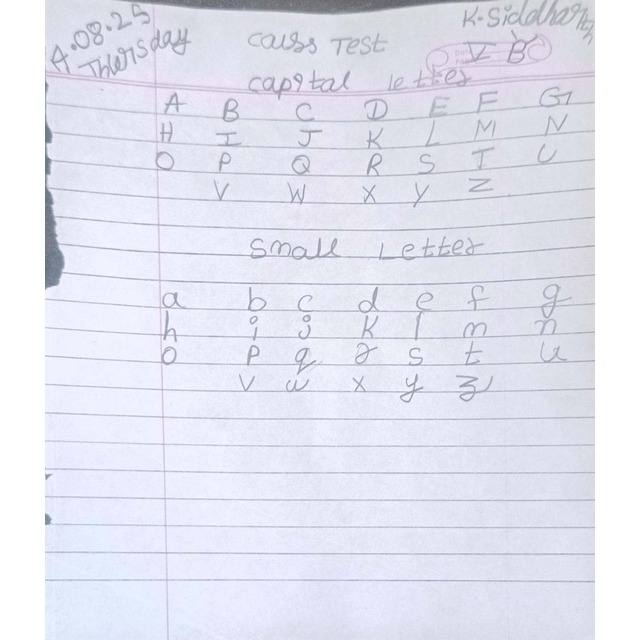 4.08.25 K.Siddharth
Thursday Calss Test V B
Capital letter
A B C D E F G
H I J K L M N
O P Q R S T U
V W X Y Z
Small Letter
a b c d e f g
h i j k l m n
o p q r s t u
v w x y z